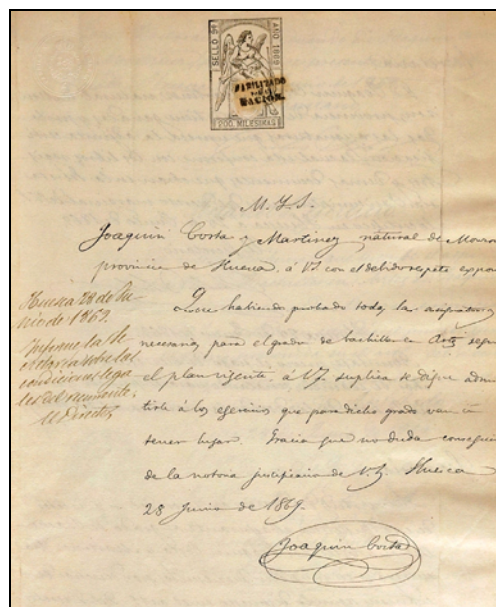 SELLO 9º
AÑO 1869
HABILITADO
POR LA
NACION.
200 MILESIMAS
M. Y. S.
Joaquin Costa y Martinez, natural de Monzon
provincia de Huesca, á VS con el debido respeto expone
Que habiendo probado todas las asignaturas
necesarias para el grado de bachiller en Artes segun
el plan vigente, á VS. suplica se digne admi
tirle á los egercicios que para dicho grado van á
tener lugar. Gracia que no duda conseguir
de la notoria justificacion de V.S. Huesca
28 Junio de 1869.
Joaquin Costa
Huesca 28 de Ju
nio de 1869.
Informe la Se
cretaria sobre las
condiciones lega
les del recurrente.
El Director,